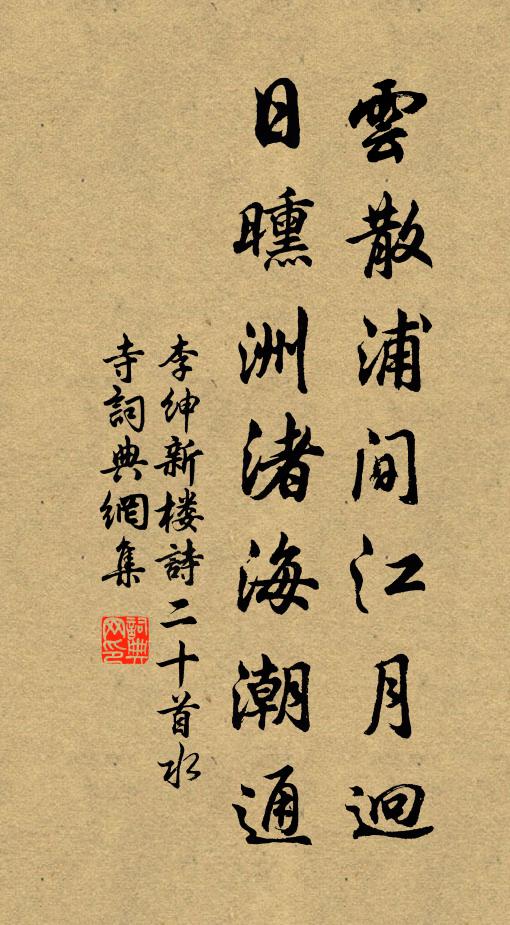 雲散浦間江月迥
日曛洲渚海潮通
李紳新楼詩二十首水
寺詞典網集
詞典网印